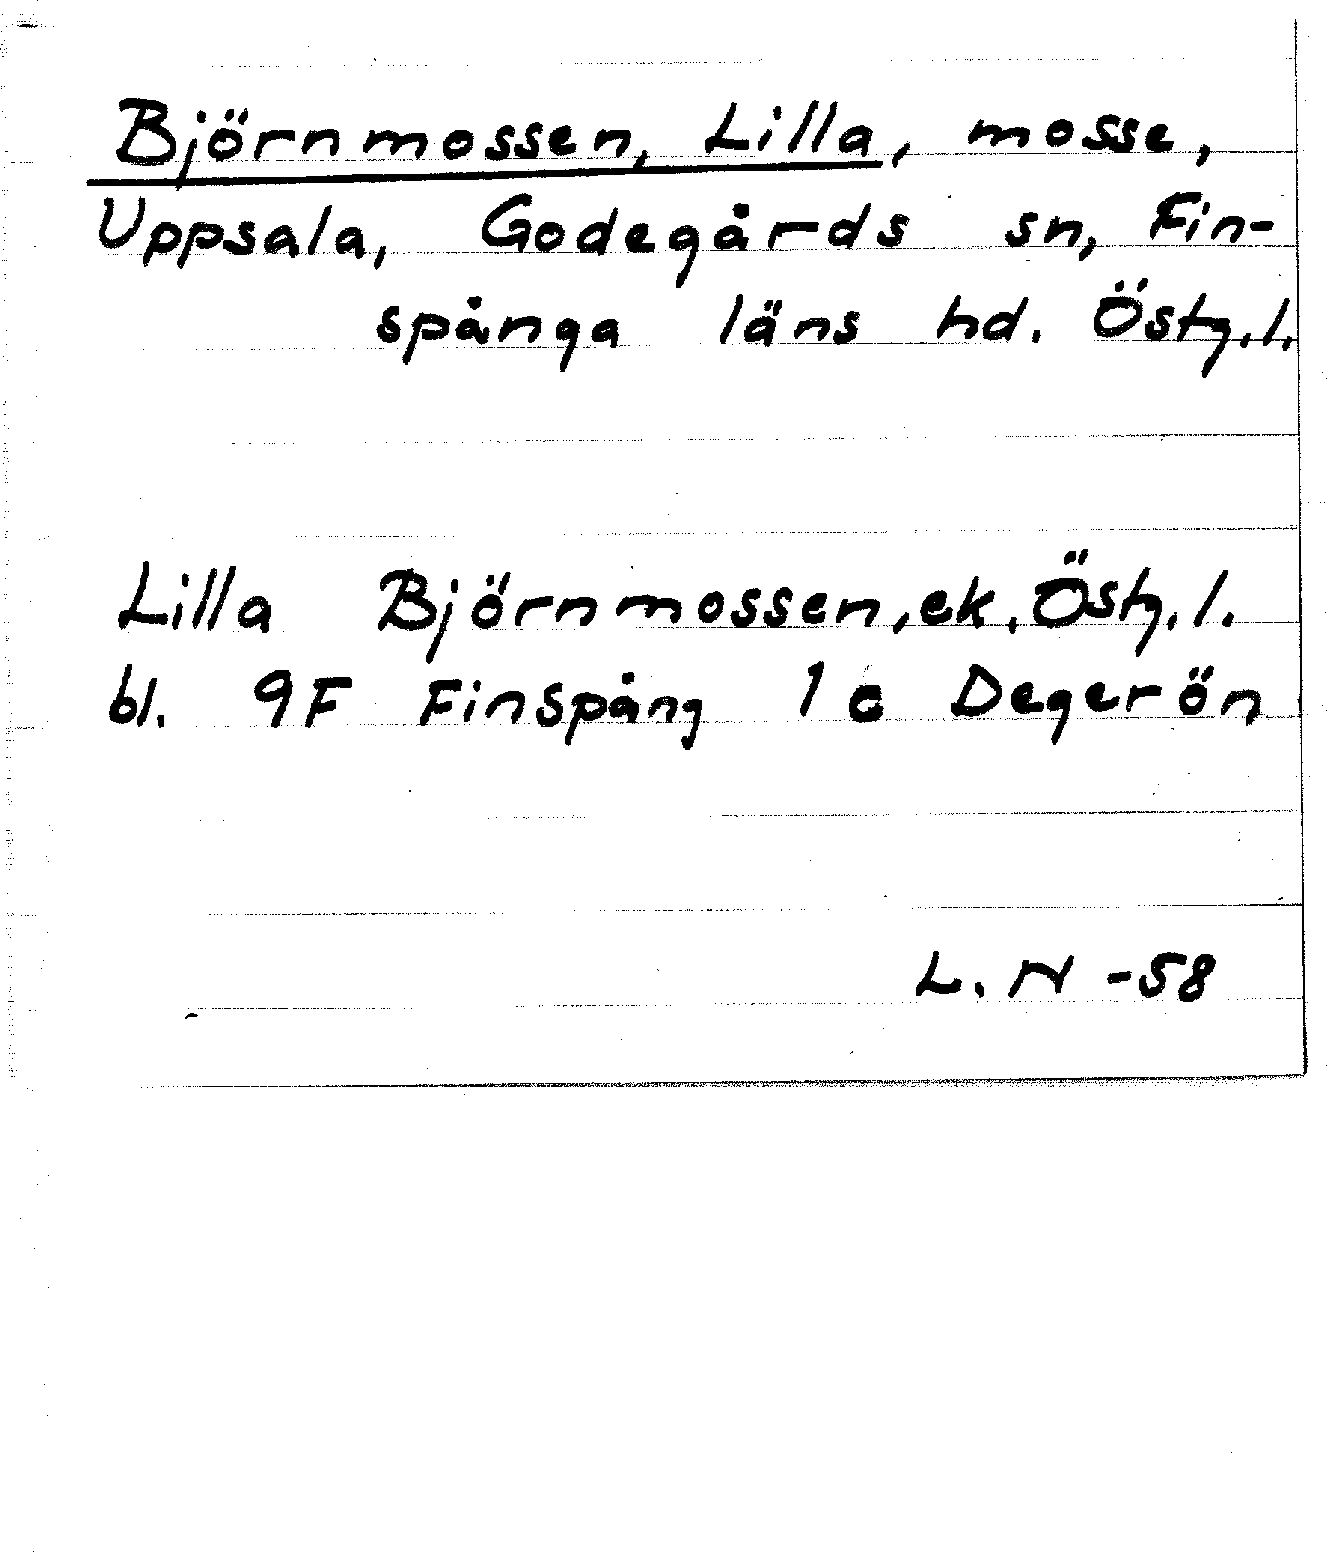 Björnmossen, Lilla, mosse,
Uppsala, Godegårds sn, Fin-
spånga läns hd. Östg.l.
Lilla Björnmossen, ek. Östg.l.
bl. 9F Finspång 1c Degerön
L. N -58